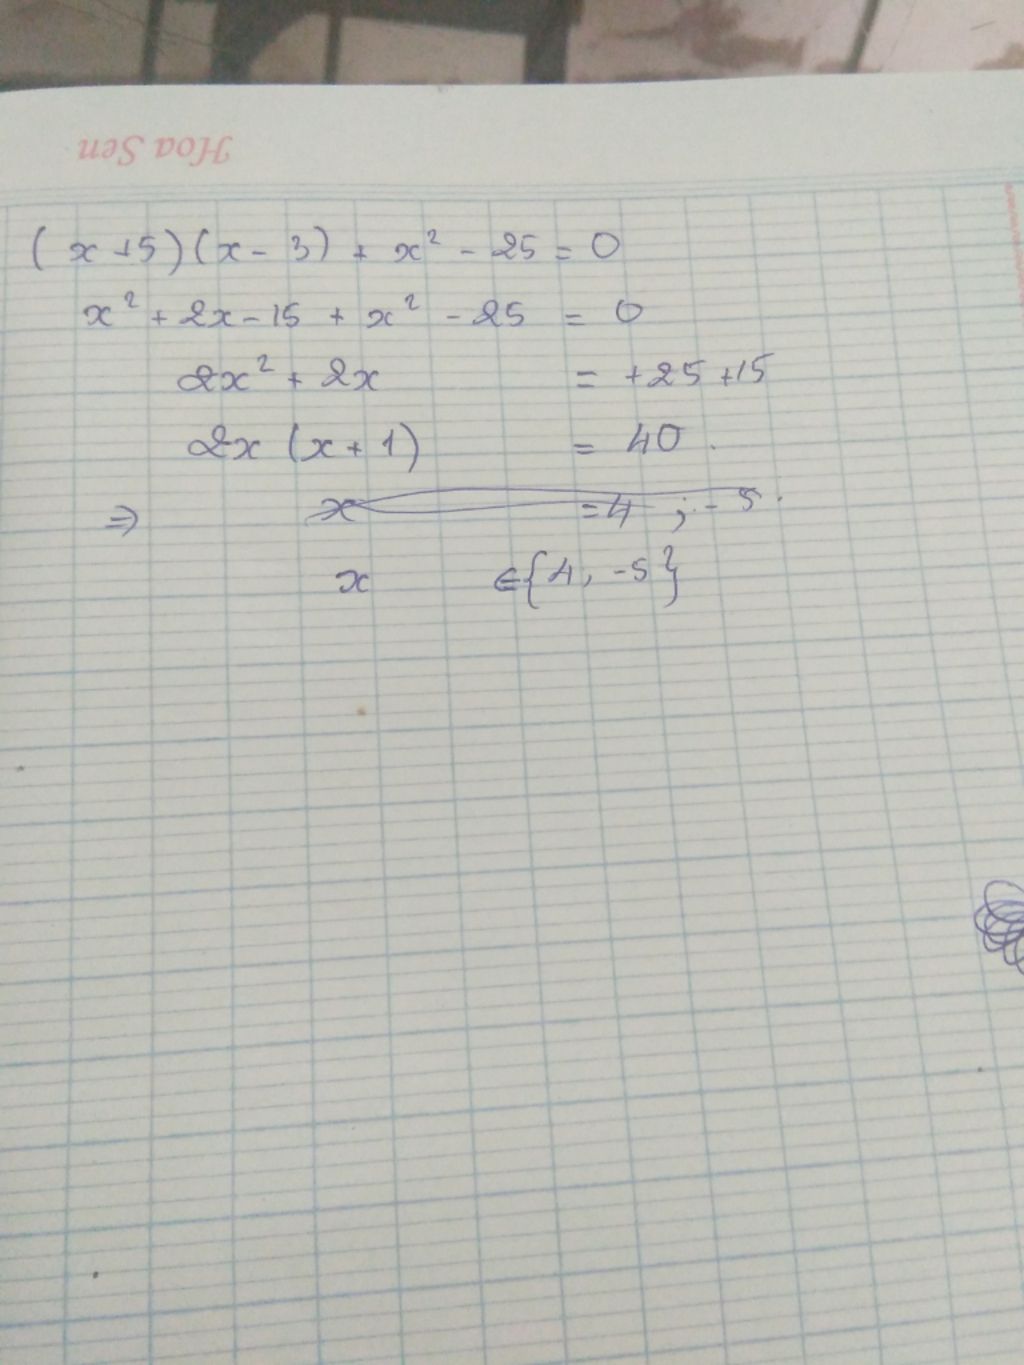 Hoa Sen
(x+5)(x-3) + x² - 25 = 0
x² + 2x - 15 + x² - 25 = 0
2x² + 2x = +25 +15
2x (x+1) = 40.
⇒ x = 4 ; -5.
x ∈ {4, -5}